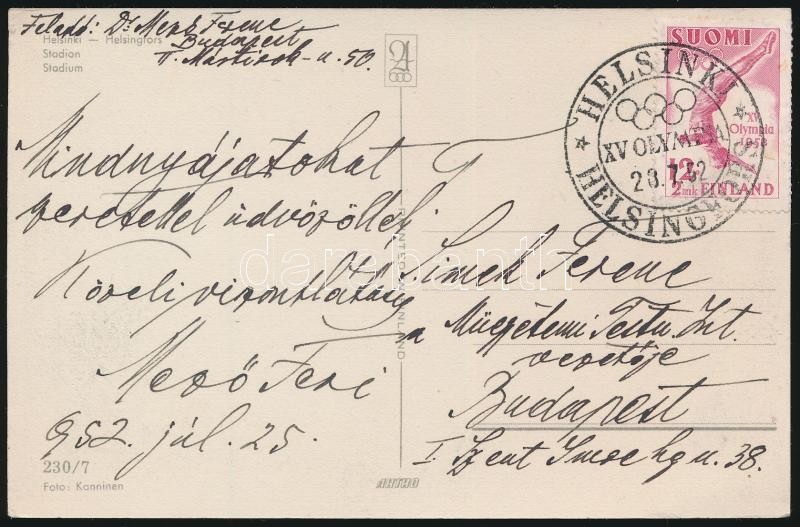 Feladó: Dr Mező Ferenc
Budapest
II. Mártírok u. 50.
Helsinki — Helsingfors
Stadion
Stadium
Mindnyájatokat
szeretettel üdvözöllek
Közeli viszontlátásra
Mező Feri
952. júl. 25.
230/7
Foto: Kanninen
PRINTED IN FINLAND
AHTHO
HELSINKI
XV OLYMPIA
28.7.52
HELSINGFORS
SUOMI
XV
Olympia
1952
12
2 mk FINLAND
T.
Simek Ferenc
a Műegyetemi Testn. Int.
vezetője
Budapest
I Szent Imre hg u. 38.
darabanth